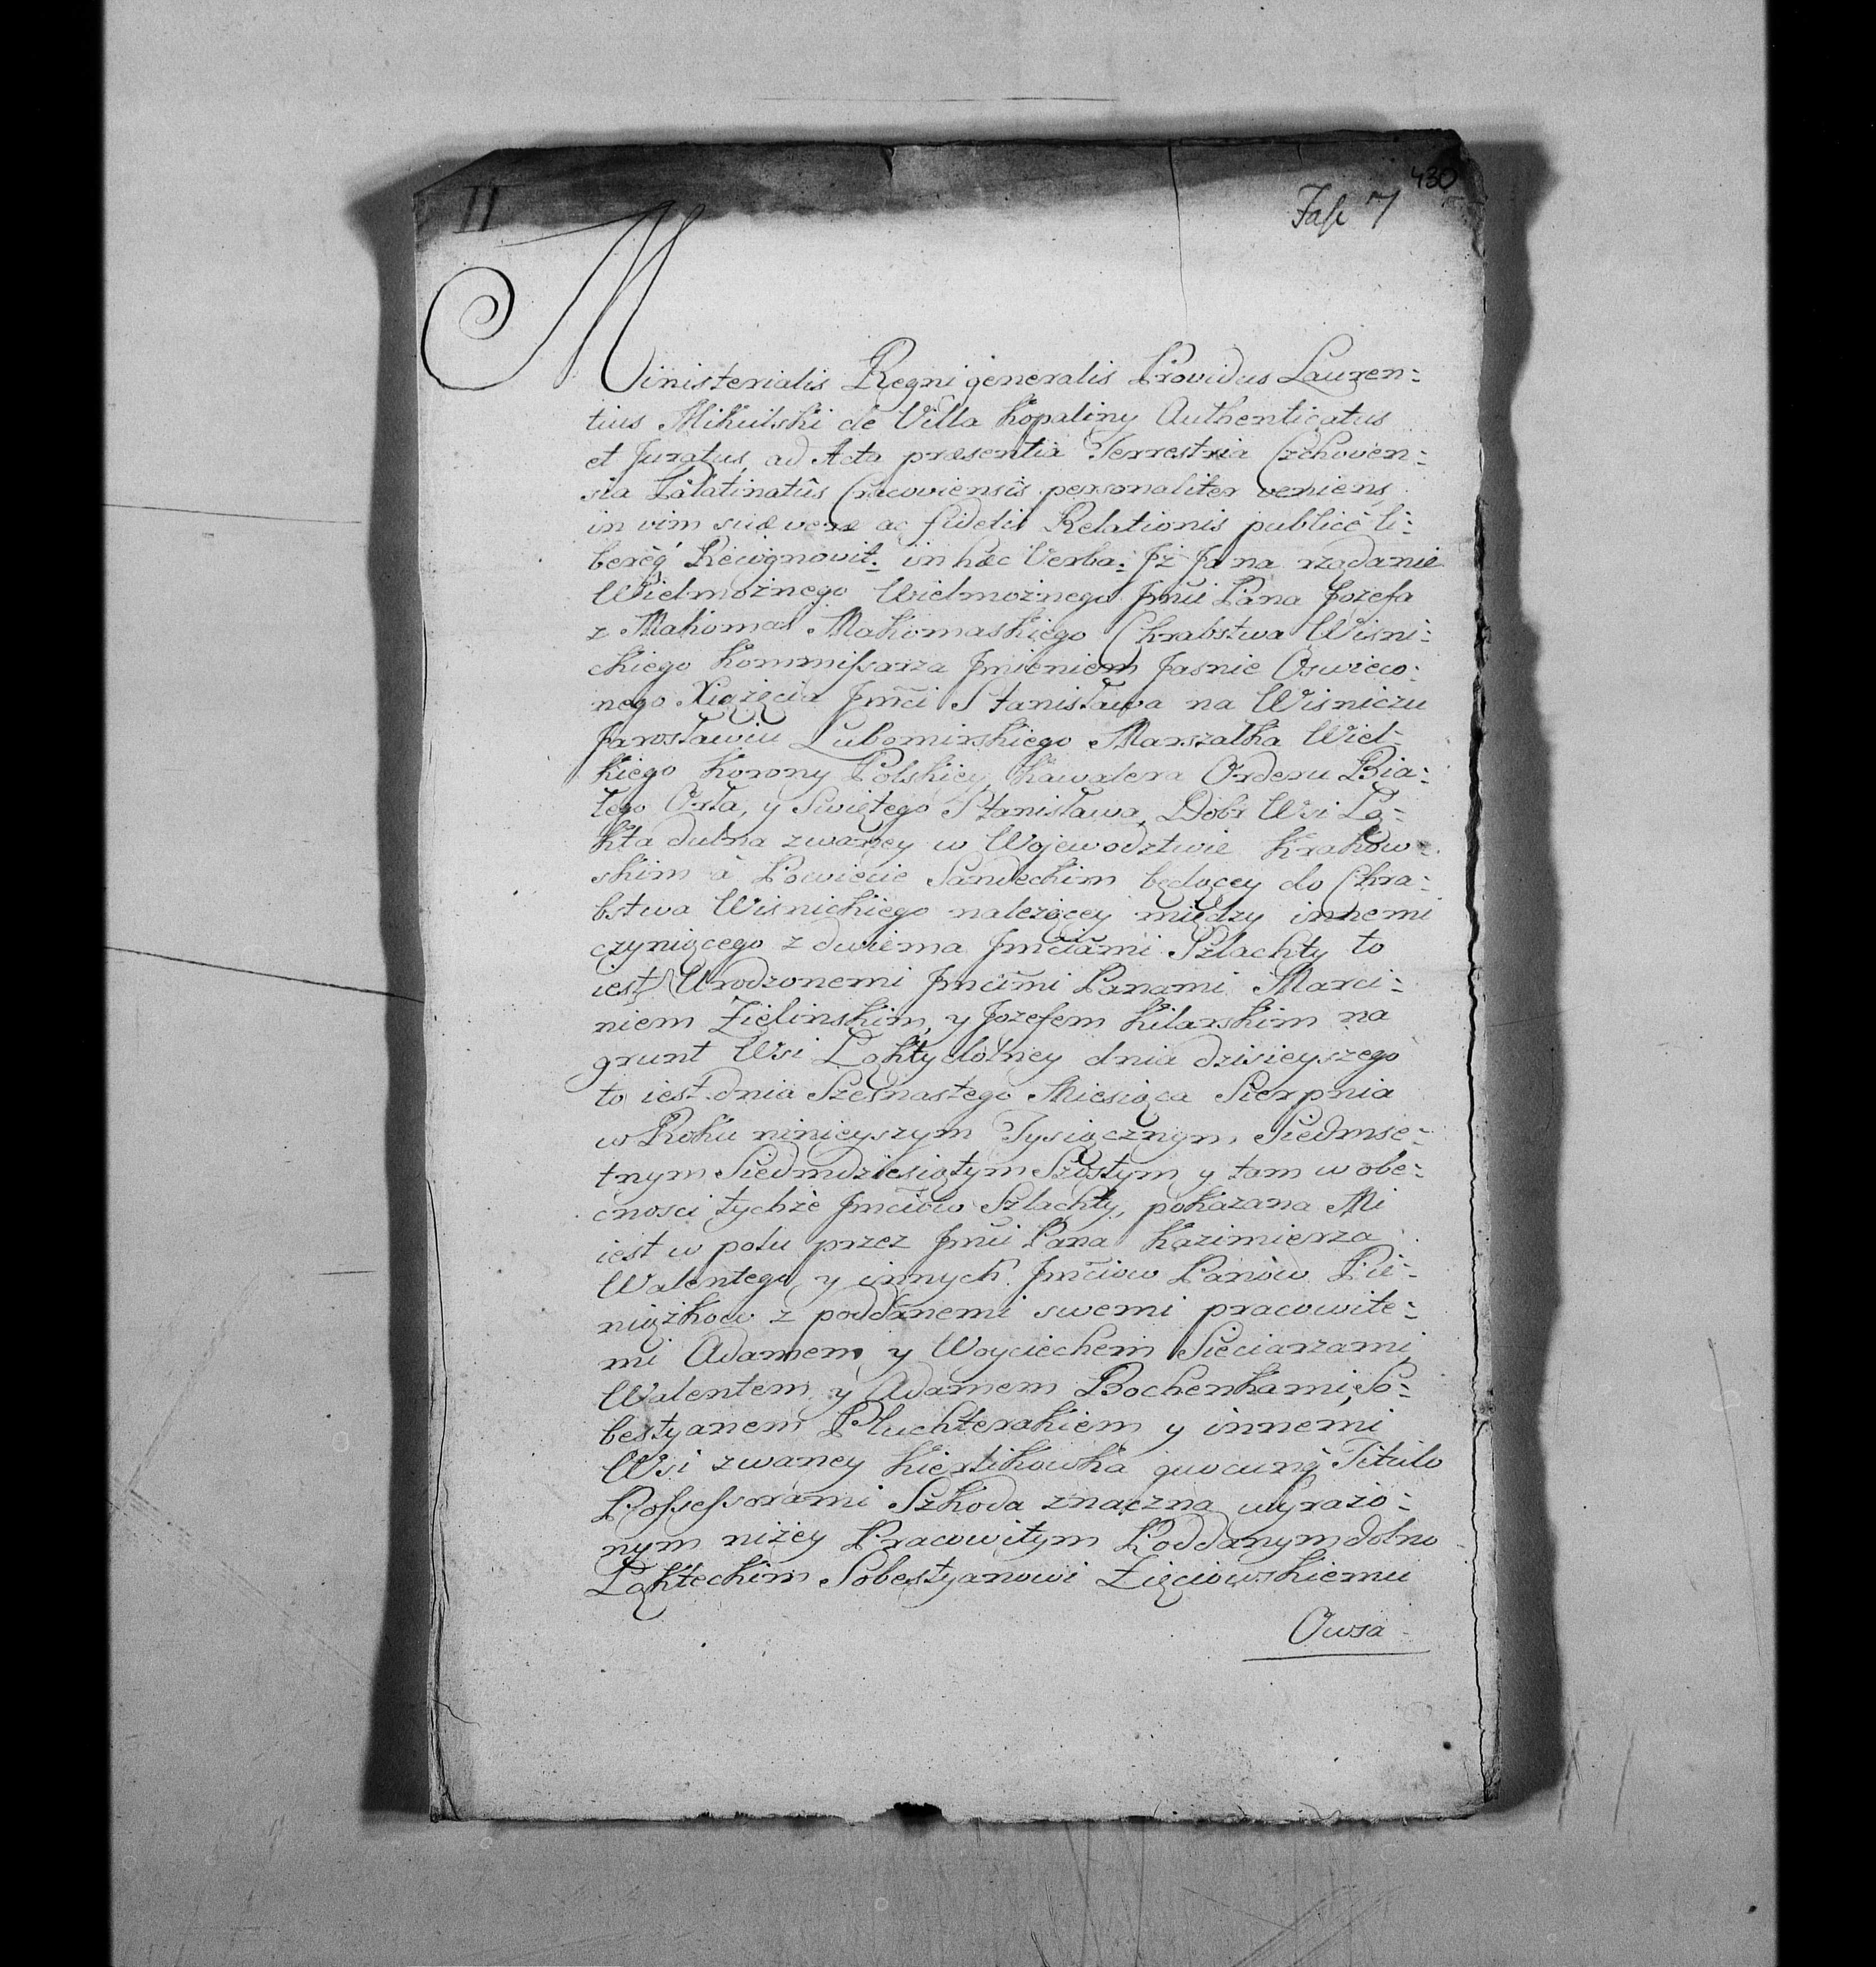 430
II
Fasc 7
Ministerialis Regni generalis Providus Lauren:
tius Mikulski de Villa Kopaliny Authenticatus
et Juratus, ad Acta præsentia Terrestria Czchovien:
sia Palatinatûs Cracoviensis personaliter veniens,
in vim suæ veræ ac fidelis Relationis publicè li:
bereq́ Recognovit. in hæc Verba: Jż Ja na rządanie
Wielmożnego Wielmożnego Jmci Pana Jozefa
z Mahomas Mahomaskiego Chrabstwa Wisni:
ckiego Kommissarza Jmieniem Jasnie Oswieco:
nego Xiążęcia Jmci Stanisława na Wisniczu
Jarosławiu Lubomirskiego Marszałka Wiel:
kiego Korony Polskiey, Kawalera Orderu Bia:
łego Orła, y Swiętego Stanisława, Dobr Wsi Łą:
kta dolna zwaney w Wojewodztwie Krakow:
skim a Powiecie Sandeckim będącey do Chra:
bstwa Wisnickiego należącey między innemi
czyniącego z dwiema Jmciami Szlachty to
iest Urodzonemi Jmćmi Panami Marci:
niem Zielinskim, y Jozefem Kilarskim na
grunt Wsi Łąkty dolney dnia dzisieyszego
to iest dnia Szesnastego Miesiąca Sierpnia
w Roku ninieyszym Tysiącznym, Siedmse:
tnym Siedmdziesiątym Szustym y tam w obe:
cnosci tychże Jmciow Szlachty, pokazana Mi
iest w polu przez Jmci Pana Kazimierza
Walentego y innych Jmciow Panów Pie:
niążkow z poddanemi swemi pracowite:
mi Adamem y Woyciechem Sieciarzami,
Walentem y Adamem Bochenkami, So:
bestyanem Pluchterakiem y innemi
Wsi zwaney Kierlikowka quocunq́ Titulo
Possessorami Szkoda znaczna wyrażo:
nym niżey Pracowitym Poddanym dolno
Łąkteckim Sobestyanowi Zięciowskiemu
Owsa